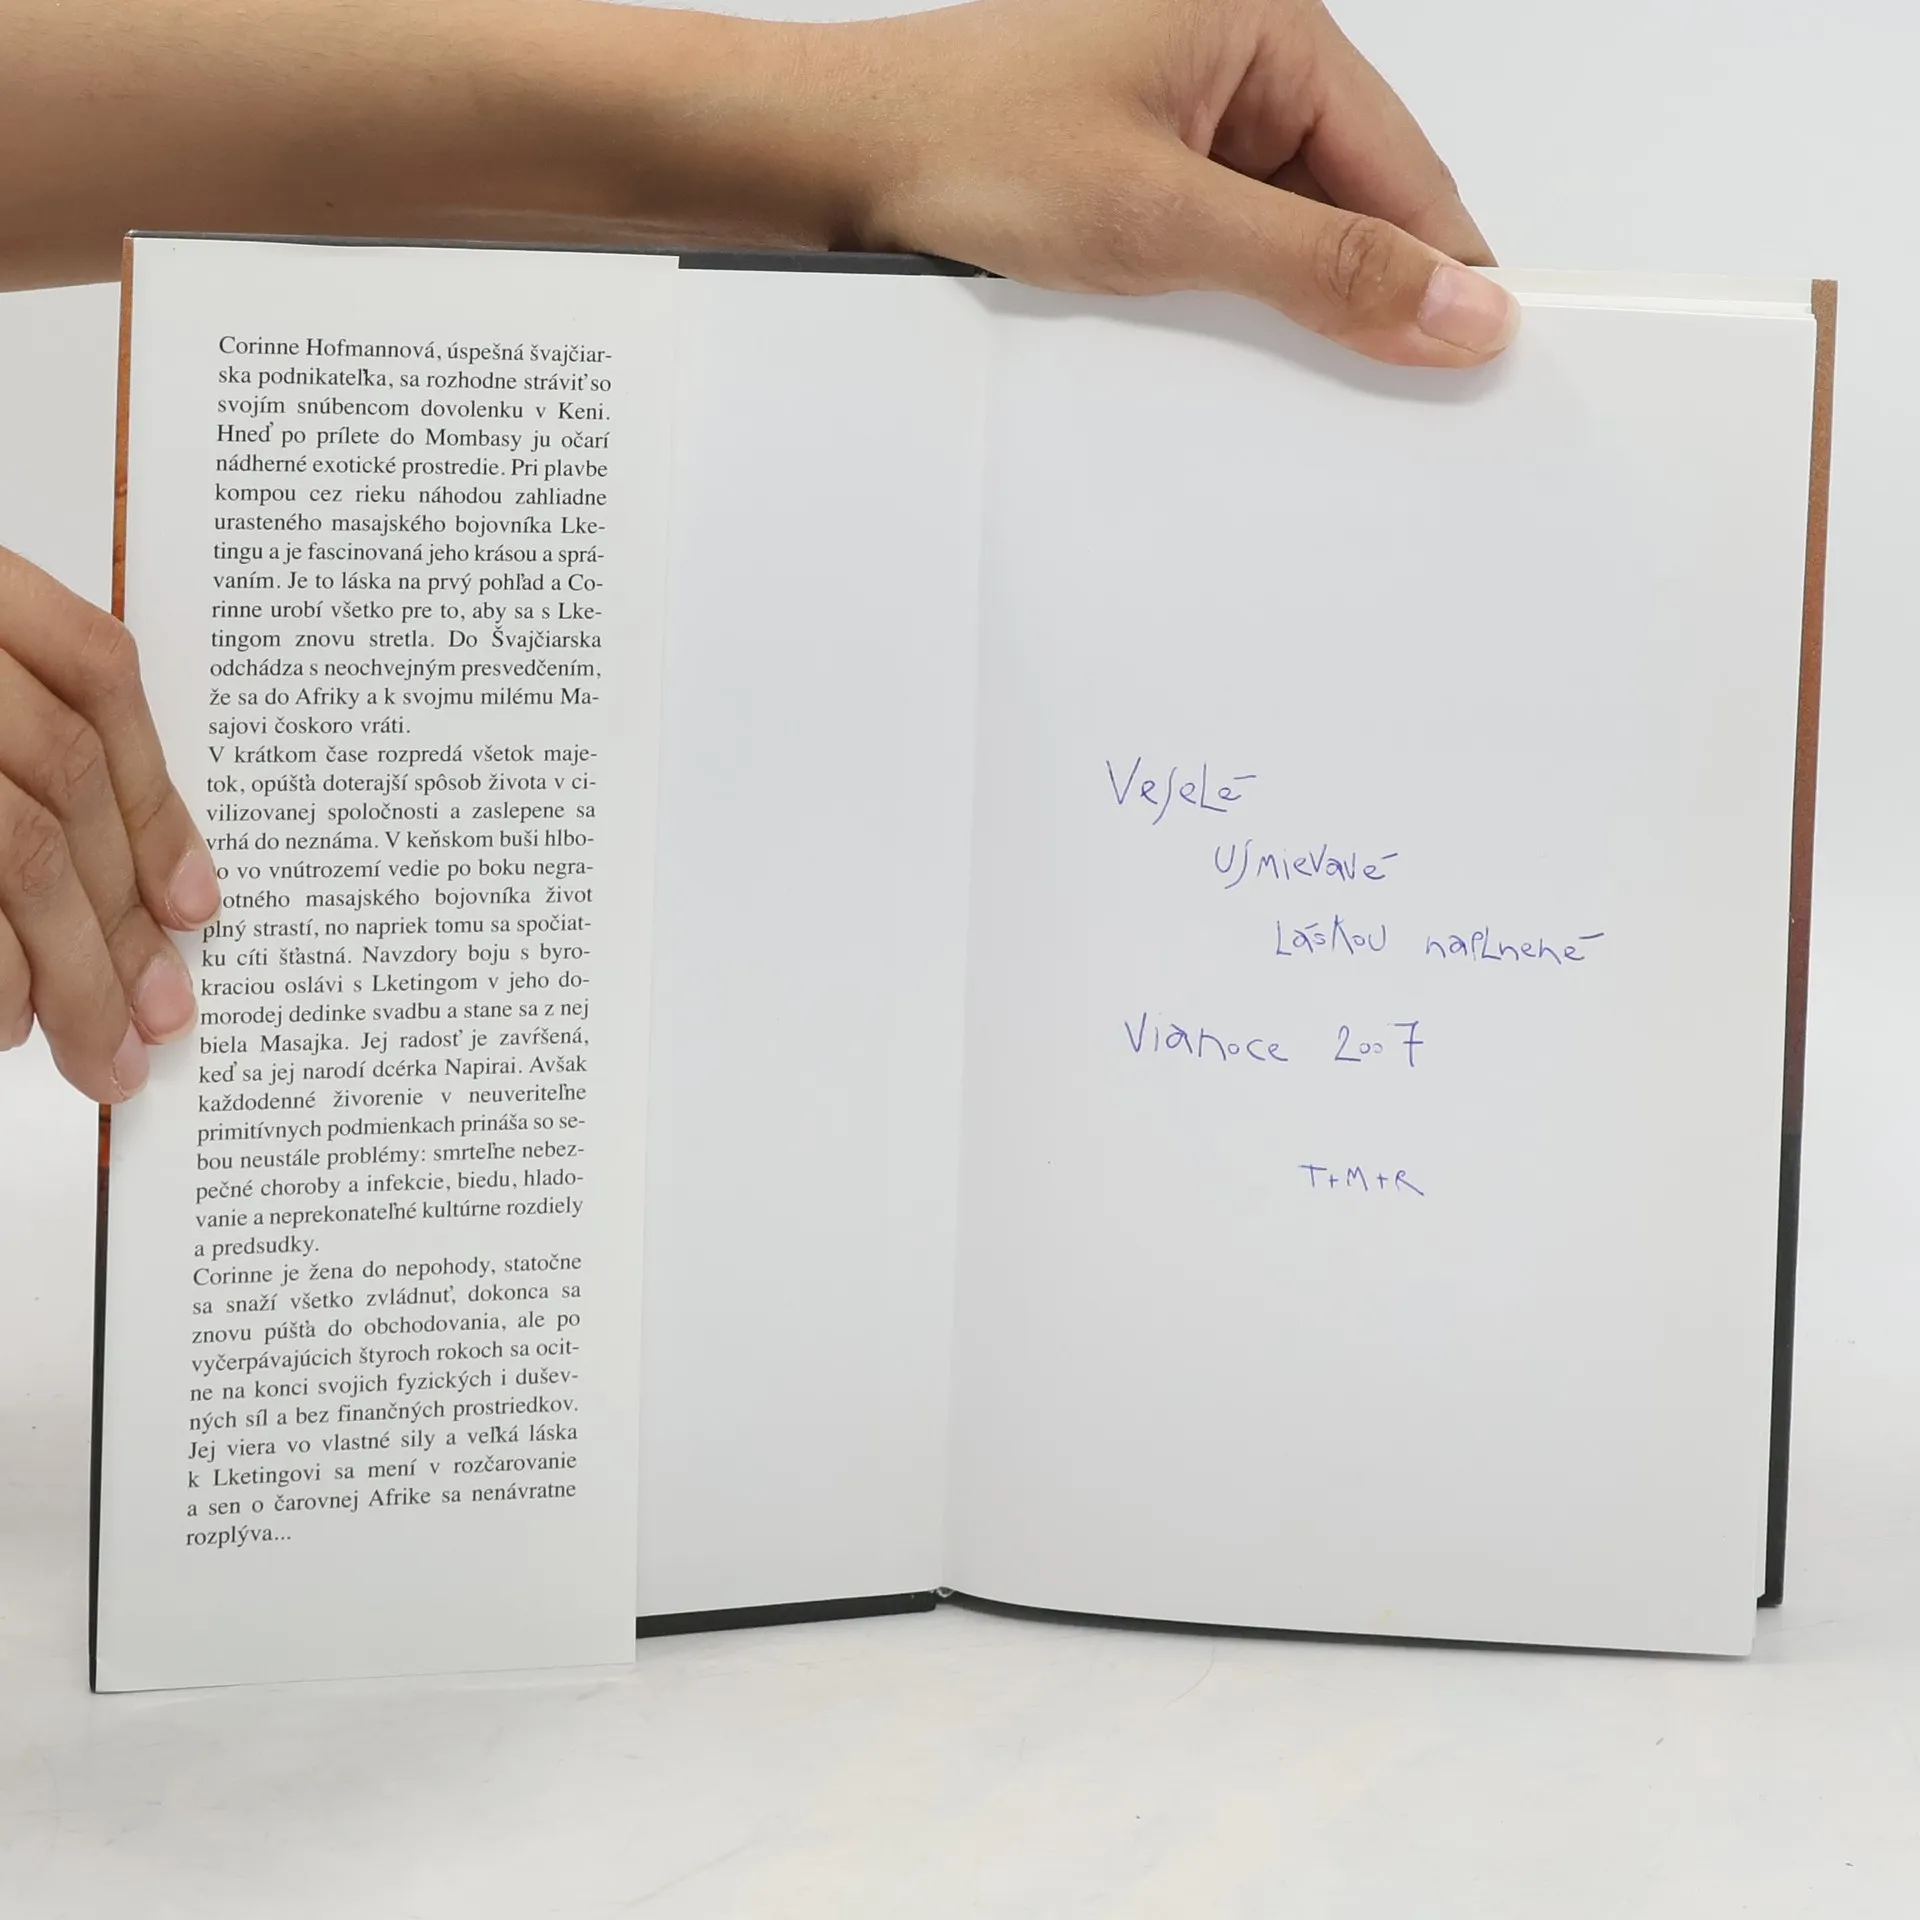 Corinne Hofmannová, úspešná švajčiar-
ska podnikateľka, sa rozhodne stráviť so
svojím snúbencom dovolenku v Keni.
Hneď po prílete do Mombasy ju očarí
nádherné exotické prostredie. Pri plavbe
kompou cez rieku náhodou zahliadne
urasteného masajského bojovníka Lke-
tingu a je fascinovaná jeho krásou a sprá-
vaním. Je to láska na prvý pohľad a Co-
rinne urobí všetko pre to, aby sa s Lke-
tingom znovu stretla. Do Švajčiarska
odchádza s neochvejným presvedčením,
že sa do Afriky a k svojmu milému Ma-
sajovi čoskoro vráti.
V krátkom čase rozpredá všetok maje-
tok, opúšťa doterajší spôsob života v ci-
vilizovanej spoločnosti a zaslepene sa
vrhá do neznáma. V keňskom buši hlbo-
o vo vnútrozemí vedie po boku negra-
otného masajského bojovníka život
plný strastí, no napriek tomu sa spočiat-
ku cíti šťastná. Navzdory boju s byro-
kraciou oslávi s Lketingom v jeho do-
morodej dedinke svadbu a stane sa z nej
biela Masajka. Jej radosť je zavŕšená,
keď sa jej narodí dcérka Napirai. Avšak
každodenné živorenie v neuveriteľne
primitívnych podmienkach prináša so se-
bou neustále problémy: smrteľne nebez-
pečné choroby a infekcie, biedu, hlado-
vanie a neprekonateľné kultúrne rozdiely
a predsudky.
Corinne je žena do nepohody, statočne
sa snaží všetko zvládnuť, dokonca sa
znovu púšťa do obchodovania, ale po
vyčerpávajúcich štyroch rokoch sa ocit-
ne na konci svojich fyzických i dušev-
ných síl a bez finančných prostriedkov.
Jej viera vo vlastné sily a veľká láska
k Lketingovi sa mení v rozčarovanie
a sen o čarovnej Afrike sa nenávratne
rozplýva...
Veselé
usmievavé
Láskou naplnené
Vianoce 2007
T+M+R